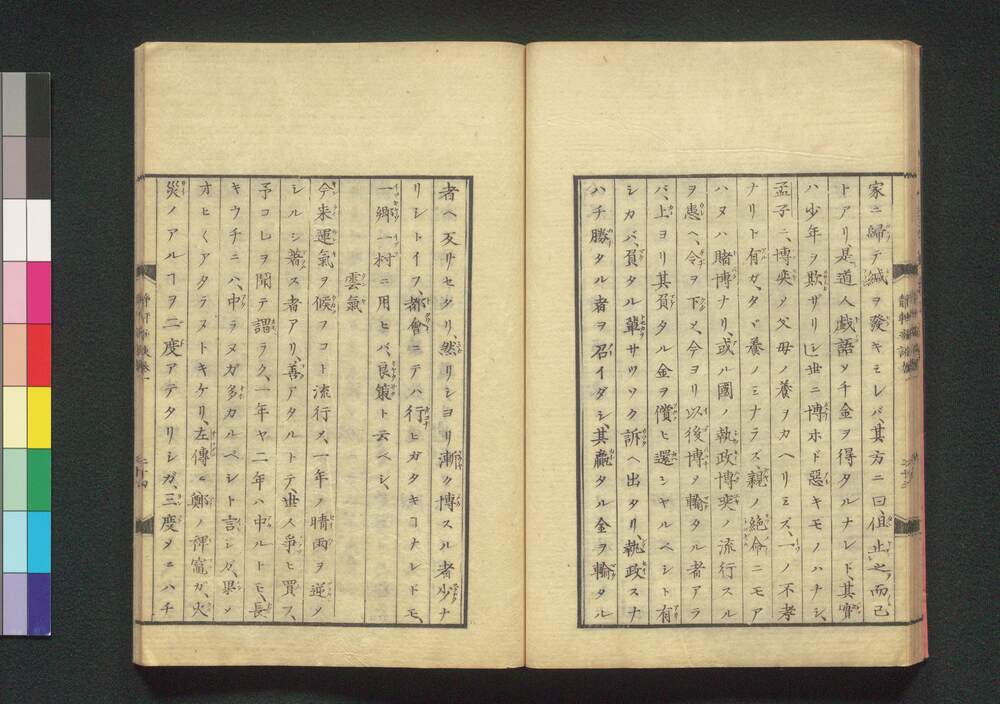 家ニ歸テ緘ヲ發キミレバ其方ニ曰但止之而已
トアリ是道人戯語ソチ金ヲ得タルナレド、其實
ハ少年ヲ欺ザリシ𪜈世ニ博ホド惡キモノハナシ、
孟子ニ、博奕ノ父母ノ養ヲカヘリミズ、一ノ不孝
ナリト有ガ、タヾ養ノミナラズ、親ノ絶命ニモア
ハヌハ賭博ナリ、或ル國ノ執政博奕ノ流行スル
ヲ患ヘ、令ヲ下シ、今ヨリ以後博ヲ輸タル者アラ
バ、上ヨリ其負タル金ヲ償ヒ還シヤルベシト有
シカバ、負タル輩サツソク訴ヘ出タリ、執政スナ
ハチ勝タル者ヲ召イダシ、其贏タル金ヲ輸タル
者ヘ反サセタリ然リシヨリ漸ク博スル者少ナ
リシトイフ、都會ニテハ行ヒガタキヿナレドモ、
一鄉一村ニ用ヒバ、良策ト云ベシ、
雲氣
今来運氣ヲ候フコト流行シ、一年ノ晴雨ヲ逆メ
シルシ著ス者アリ、善アタルトテ、世人爭ヒ買フ、
予コレヲ聞テ謂ラク、一年ヤ二年ハ中ルトモ、長
キウチニハ、中ラヌガ多カルベシト言シガ、果シ
オヒ〱アタラヌトキケリ、左傳ニ鄭ノ裨竈ガ、火
災ノアルヿヲ二度アテタリシガ、三度メニハチ